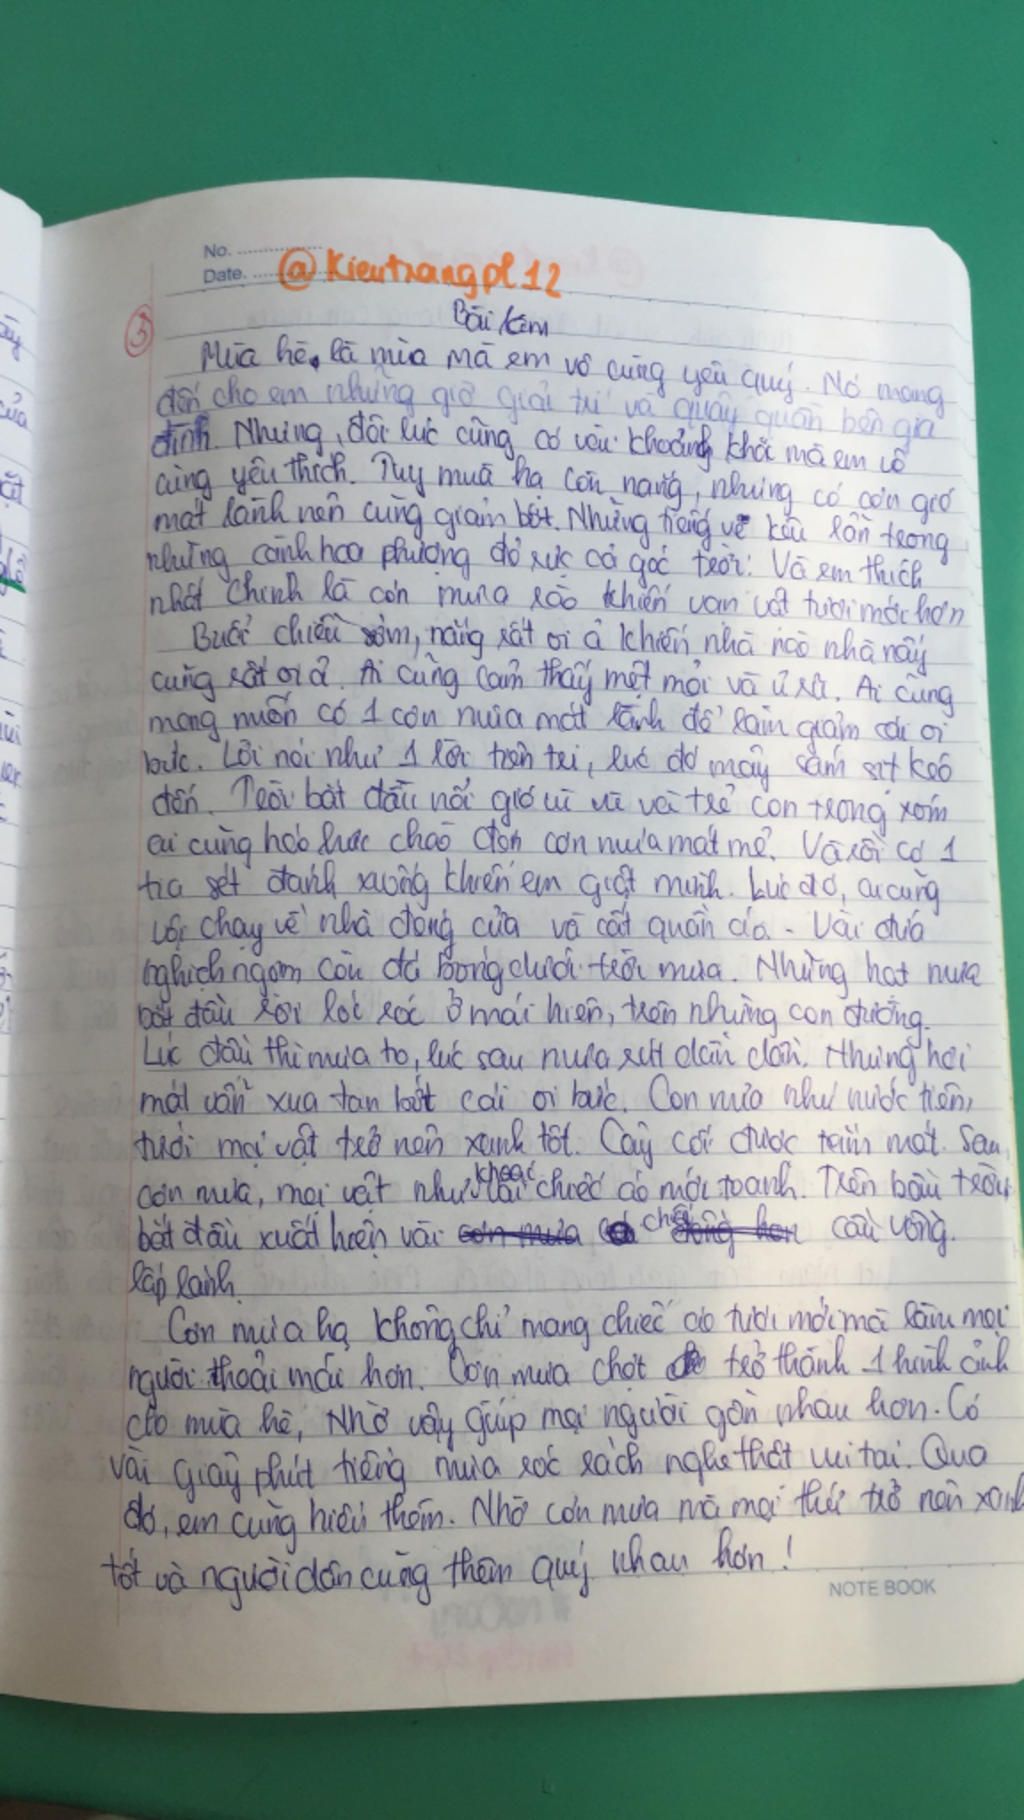 No.
Date.
@Kieutrangpl12
3
Bài làm
Mùa hè, là mùa mà em vô cùng yêu quý. Nó mang
đến cho em những giờ giải trí và quây quần bên gia
đình. Nhưng, đôi lúc cũng có vài khoảng khắc mà em vô
cùng yêu thích. Tuy mùa hạ còn nắng, nhưng có cơn gió
mát lành nên cũng giảm bớt. Những tiếng ve kêu lẫn trong
những cành hoa phượng đỏ rực cả góc trời. Và em thích
nhất chính là cơn mưa rào khiến vạn vật tươi mới hơn
Buổi chiều sớm, nắng rất oi ả khiến nhà nào nhà nấy
cũng rất oi ả. Ai cũng cảm thấy mệt mỏi và ủ rũ. Ai cũng
mong muốn có 1 cơn mưa mát lành để làm giảm cái oi
bức. Lời nói như 1 lời tiên tri, lúc đó mây sầm sịt kéo
đến. Trời bắt đầu nổi gió ù ù và trẻ con trong xóm
ai cũng háo hức chào đón cơn mưa mát mẻ. Và rồi có 1
tia sét đánh xuống khiến em giật mình. Lúc đó, ai cũng
vội chạy về nhà đóng cửa và cất quần áo. Vài đứa
nghịch ngợm còn đá bóng dưới trời mưa. Những hạt mưa
bắt đầu rơi lốc cốc ở mái hiên, trên những con đường.
Lúc đầu thì mưa to, lúc sau mưa rứt dần dần. Nhưng hơi
mát vẫn xua tan bớt cái oi bức. Cơn mưa như nước tiên,
tưới mọi vật trở nên xanh tốt. Cây cối được tắm mát. Sau
cơn mưa, mọi vật như khoác chiếc áo mới toanh. Trên bầu trời
bắt đầu xuất hiện vài chiếc cầu vồng.
lấp lánh.
Cơn mưa hạ không chỉ mang chiếc áo tươi mới mà làm mọi
người thoải mái hơn. Cơn mưa chợt trở thành 1 hình ảnh
cho mùa hè, Nhờ vậy giúp mọi người gần nhau hơn. Có
vài giây phút tiếng mưa róc rách nghe thật vui tai. Qua
đó, em cũng hiểu thêm. Nhờ cơn mưa mà mọi thứ trở nên xanh
tốt và người dân cũng thêm quý nhau hơn!
NOTE BOOK